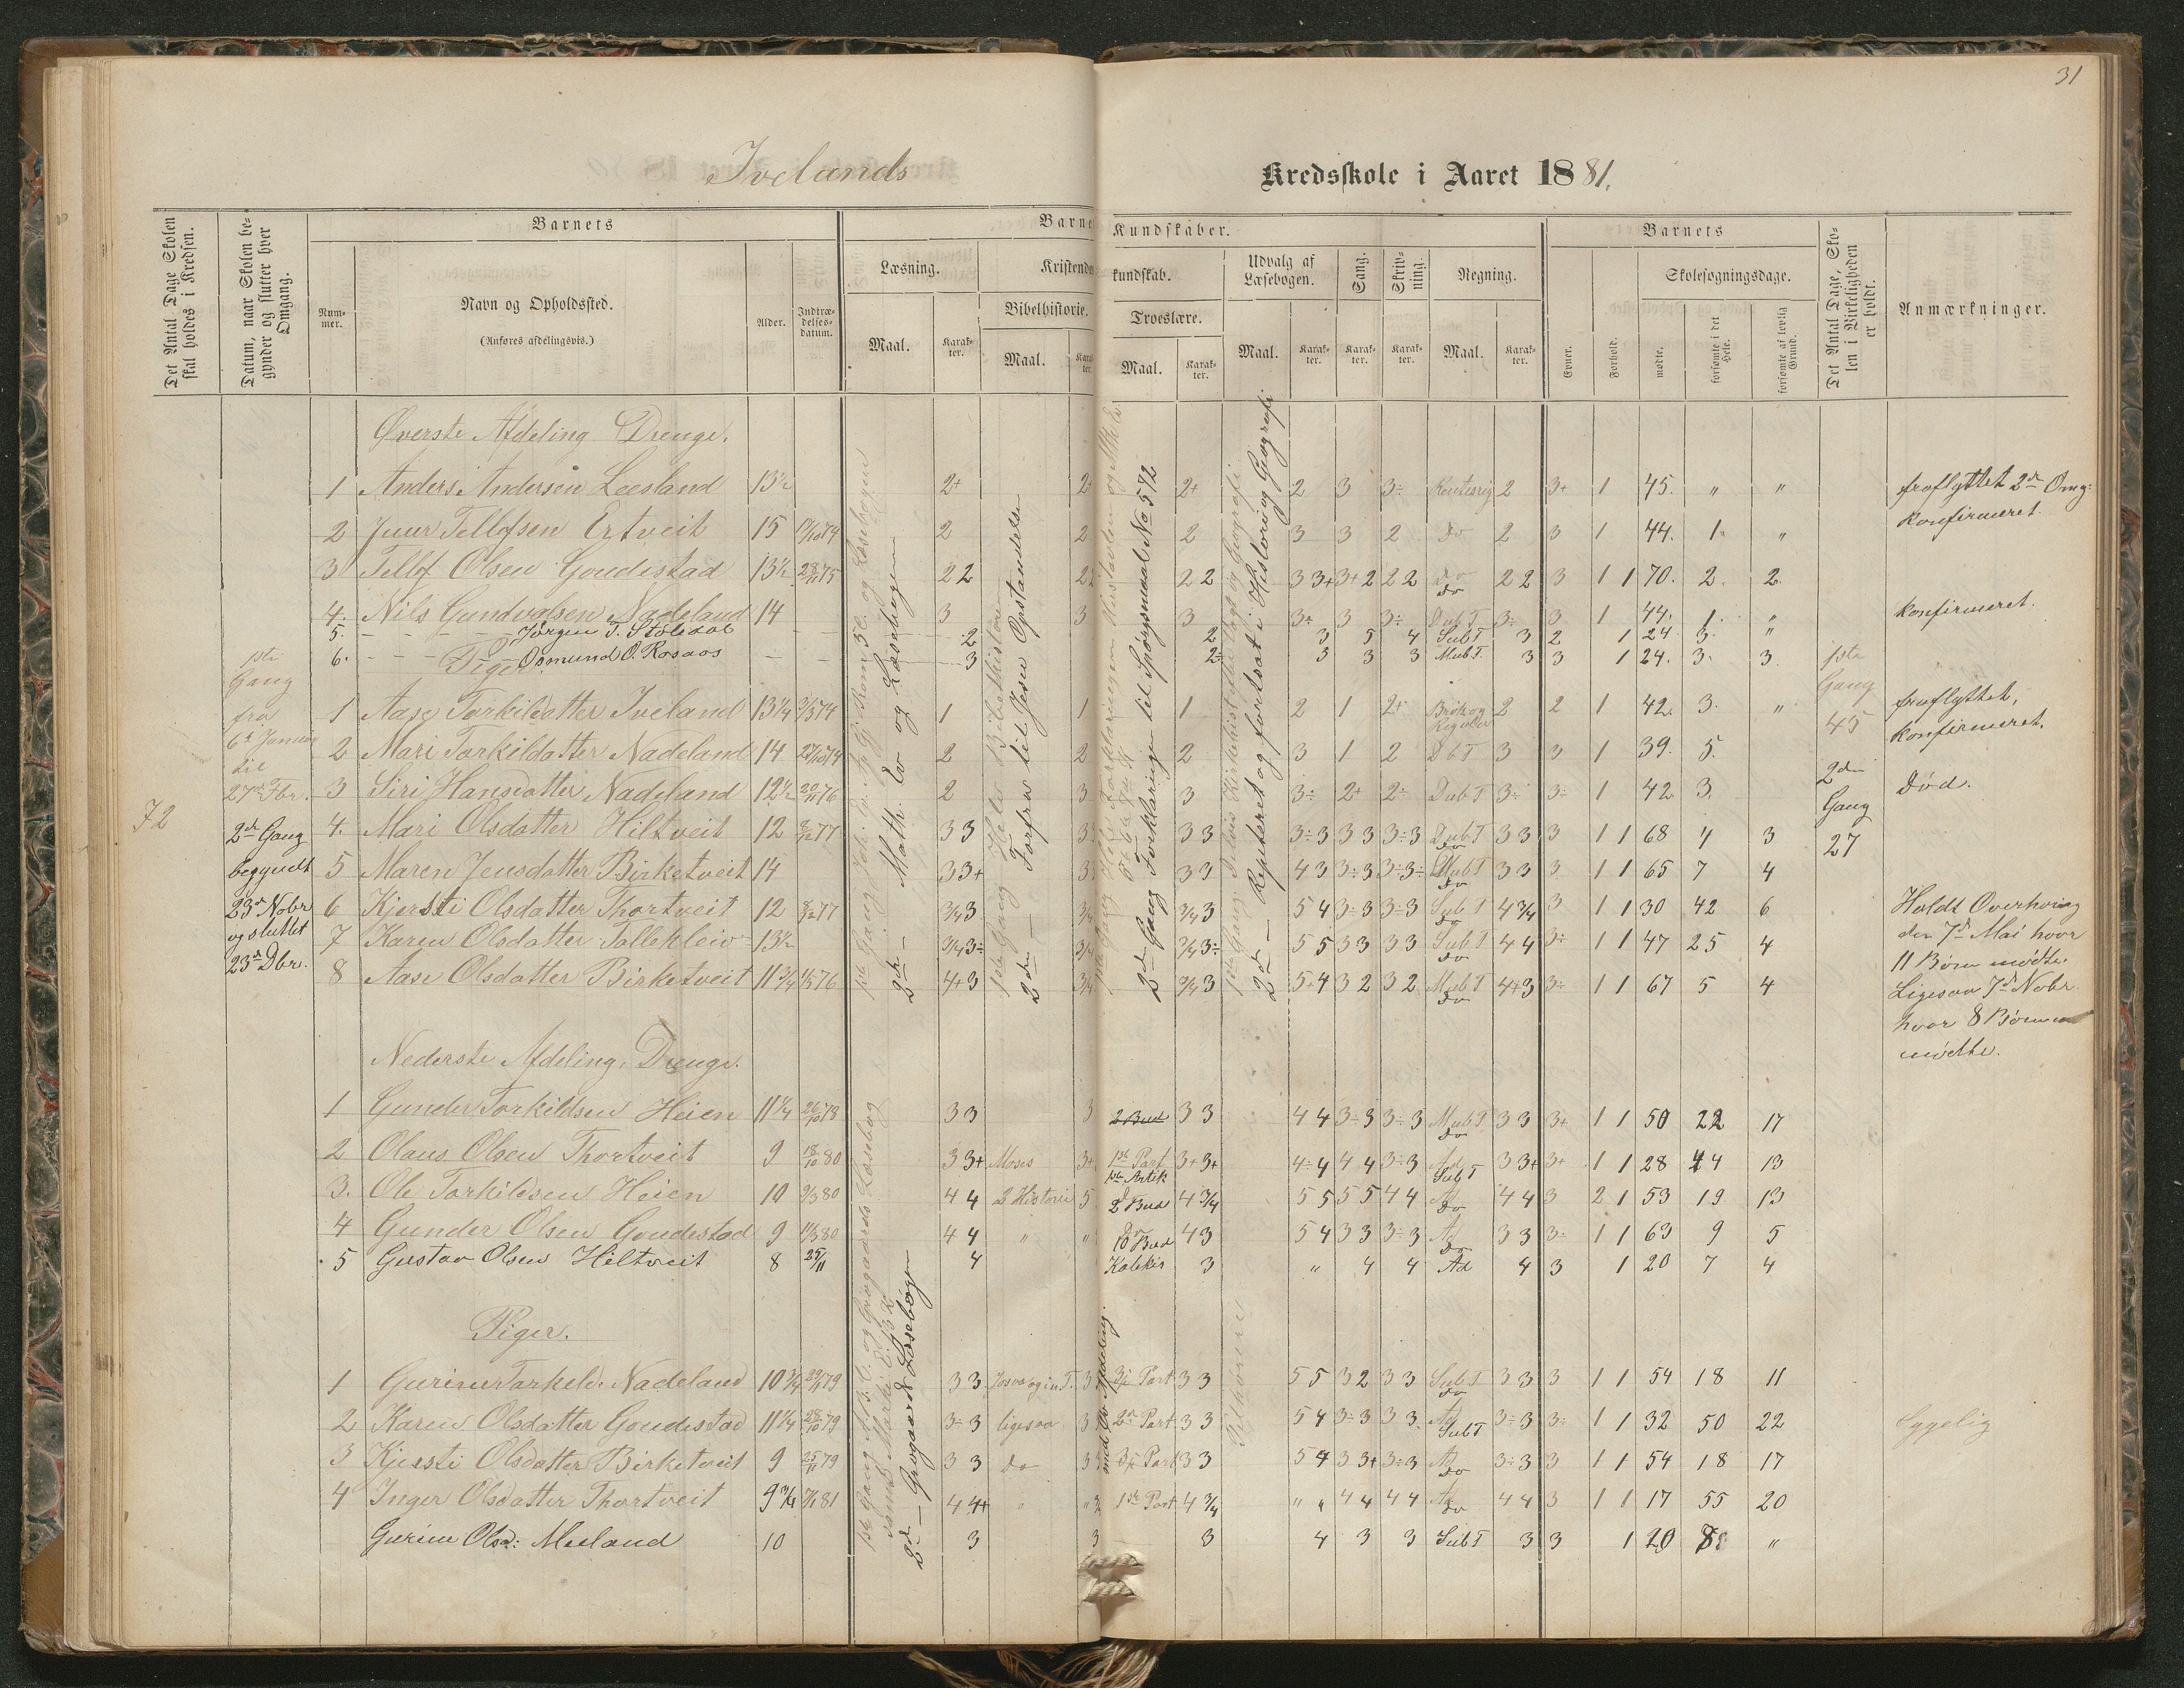 31
Ivelands Kredsskole i Aaret 1881.
Det Antal Dage Skolen skal holdes i Kredsen.
Datum, naar Skolen begynder og slutter hver Omgang.
Barnets
Nummer.
Navn og Opholdssted.
(Anføres afdelingsvis.)
Alder.
Indtrædelsesdatum.
Barne
Kundskaber.
Læsning.
Maal.
Karakter.
Kristendo
kundskab.
Bibelhistorie.
Maal.
Troeslære.
Maal.
Karakter.
Udvalg af Læsebogen.
Maal.
Karakter.
Sang.
Karakter.
Skrivning.
Karakter.
Regning.
Maal.
Karakter.
Barnets
Evner.
Forhold.
Skolesøgningsdage.
mødte.
forsømte i det Hele.
forsømte af lovlig Grund.
Det Antal Dage, Skolen i Virkeligheden er holdt.
Anmærkninger.
72
1ste
Gang
fra
6te Januar
til
27de Fbr.
2den Gang
begyndt
23de Nobr
og sluttet
23de Dbr.
Øverste Afdeling Drenge.
1 Anders Andersen Leesland 13½ 2+ 2+ 2 3 3÷ 2 3+ 1 45. " " fraflyttet 2den Omg:
2 Juur Tellefsen Ertveit 15 2 2 2 3 3 2 do 2 3 1 44. 1. " konfirmeret.
3 Tellef Olsen Goudestad 13½ 28/11 75 2 2 2 2 2 3 3+ 3+ 2 2 2 do do 2 2 3 1 1 70. 2. 2.
4. Nils Gundvalsen Nadeland 14 3 3 3 3÷ 3 3÷ Dub T 3÷ 3 1 44. 1. " konfirmeret.
5. Jørgen T. Stöledal 2 2 3 5 4 Sub T 3 2 1 24 3. "
6. Osmund O. Rosaas 3 2÷ 3 3 3 Mub T. 3 3 1 24. 3. 3.
Piger
1 Aase Torkildatter Iveland 13¼ 1 1 1 2 1 2+ Brøk og 2 2 1 42. 3. " fraflyttet,
2 Mari Torkildatter Nadeland 14 2 2 2 3 1 2 3 3 1 39. 5. konfirmeret.
3 Siri Hansdatter Nadeland 12½ 20/11 76 2 3 3 3÷ 2+ 2÷ Dub T 3÷ 3÷ 1 42 3. Død.
4. Mari Olsdatter Hiltveit 12 3 3 3 3 3 3÷ 3 3 3 3÷ 3 Dub T do 3 3 3 1 1 68 4 3
5 Maren Jensdatter Birketveit 14 3 3+ 3 3 3 4 3 3÷ 3 3÷ 3÷ do 3 3 3 1 1 65 7 4
6 Kjersti Olsdatter Thortveit 12 3/4 3 3/4 3/4 3 5 4 3÷ 3 3÷ 3 Sub T do 4 3/4 3 1 1 30 42 6
7 Karen Olsdatter Tallekleiv 13½ 3/4 3÷ 3/4 3/4 3÷ 5 5 3 3 3 3 Sub T do 4 4 3÷ 1 1 47 25 4
8 Aase Olsdatter Birketveit 11¾ 4+ 3 3/4 3/4 3 5+ 4 3 2 3 2 Mub T do 4+ 3 3÷ 1 1 67 5 4
1ste
Gang
45
2den
Gang
27
Holdt Overhøring
den 7de Mai hvor
11 Børn mødte.
Ligesaa 7de Nobr
hvor 8 Børn
mødte.
2den Math. Ev og Læsebogen
1ste Gang Hele Bibelhistorien
2den Forfra til Jesu Opstandelse
2den Gang Forklaringen til Spørgsmaal No 572
2den Repeteret og fortsat i Historie og Geografi
Nederste Afdeling, Drenge.
1 Gunder Torkildsen Heien 11¼ 26/10 78 3 3 3 2 Bud 3 3 4 4 3÷ 3 3÷ 3 Mub T do 3 3 3+ 1 1 50 22 17
2 Olaus Olsen Thortveit 9 18/10 80 3 3+ Moses 3+ 1ste Part 1ste Artik 3+ 3+ 4÷ 4 4 4 3÷ 3 Ad Sub T 3 3+ 3+ 1 1 28 44 13
3. Ole Torkildsen Heien 10 9/3 80 4 4 2 Historie 5 2d Bud 4 3/4 5 5 5 5 4 4 Ad do 4 4 3 2 1 53 19 13
4 Gunder Olsen Goudestad 9 4 4 " " do 10 Bud 4 3 5 4 3 3 3÷ 3 Ad do 3 3 3÷ 1 1 63 9 5
5 Gustav Olsen Hiltveit 8 25/11 4 Katekis 3 " 4 4 Ad 4 3 1 20 7 4
Piger.
1 Gurine Torkeld. Nadeland 10¾ 3 3 3 3 Part 3 3 5 5 3 2 3 3 Sub T do 3 3 3 1 1 54 18 11
2 Karen Olsdatter Goudestad 11¼ 28/10 79 3÷ 3 ligesaa 3 2den Part 3 3 5 4 3÷ 3 3 3 Ad Sub T 3÷ 3 3÷ 1 1 32 50 22 Sygelig
3 Kjersti Olsdatter Birketveit 9 25/11 79 3 3 do 3 3 Part 3 3 5 4 3 3+ 3÷ 3 Ad do 3÷ 3 3 1 1 54 18 17
4 Inger Olsdatter Thortveit 9¾ 7/1 81 4 4+ " " 1ste Part 4 3/4 " 4 4 4 4 4 Ad do 4 4 3 1 1 17 55 20
Gurine Olsd: Meeland 10 3 3 3 4 3 3 Sub T 3 3 1 20 8 "
2den Grogaards Læsebogen
med Øv. Afdeling.
Tilhørere